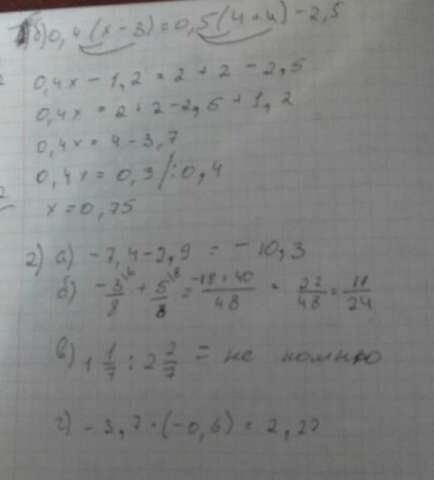 б) 0,4(x-3)=0,5(4+4)-2,5
0,4x-1,2=2+2-2,5
0,4x=2+2-2,5+1,2
0,4x=4-3,7
0,4x=0,3/:0,4
x=0,75
2) а) -7,4-2,9 = -10,3
б) -3/8 + 5/8 = -18+40/48 = 22/48 = 11/24
в) 1 1/7 : 2 2/7 = не помню
г) -3,7·(-0,6)=2,22